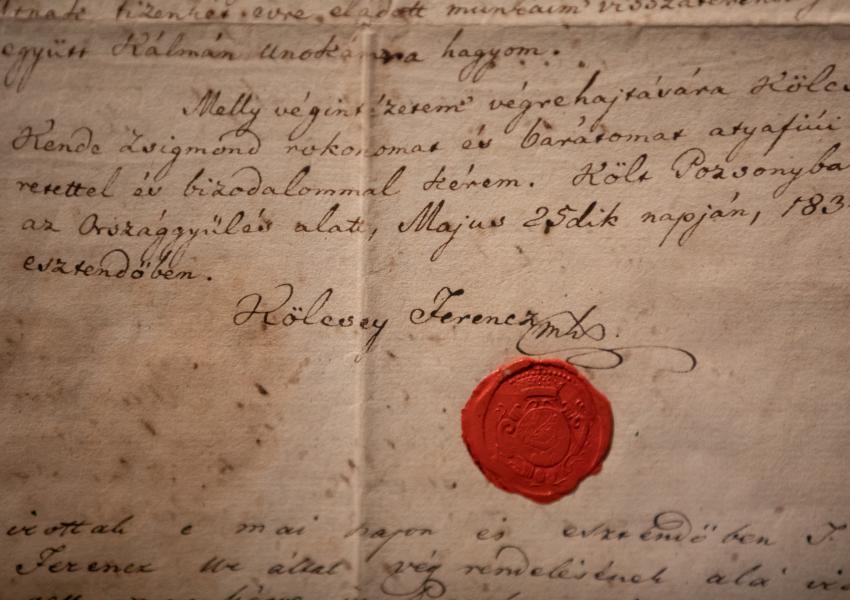 tizenkét evre eladott munkáim
együtt Kálmán unokámra hagyom.
Melly végintézetem végrehajtására Kölcs
Kende Zsigmond rokonomat és barátomat atyafiúi
retettel és bizodalommal kérem. Költ Pozsonyba
az Országgyűlés alatt, Majus 25dik napján, 183
esztendőben.
Kölcsey Ferencz mk.
irottak e mai napon és esztendőben T.
Ferencz Ur által vég rendelésének alá